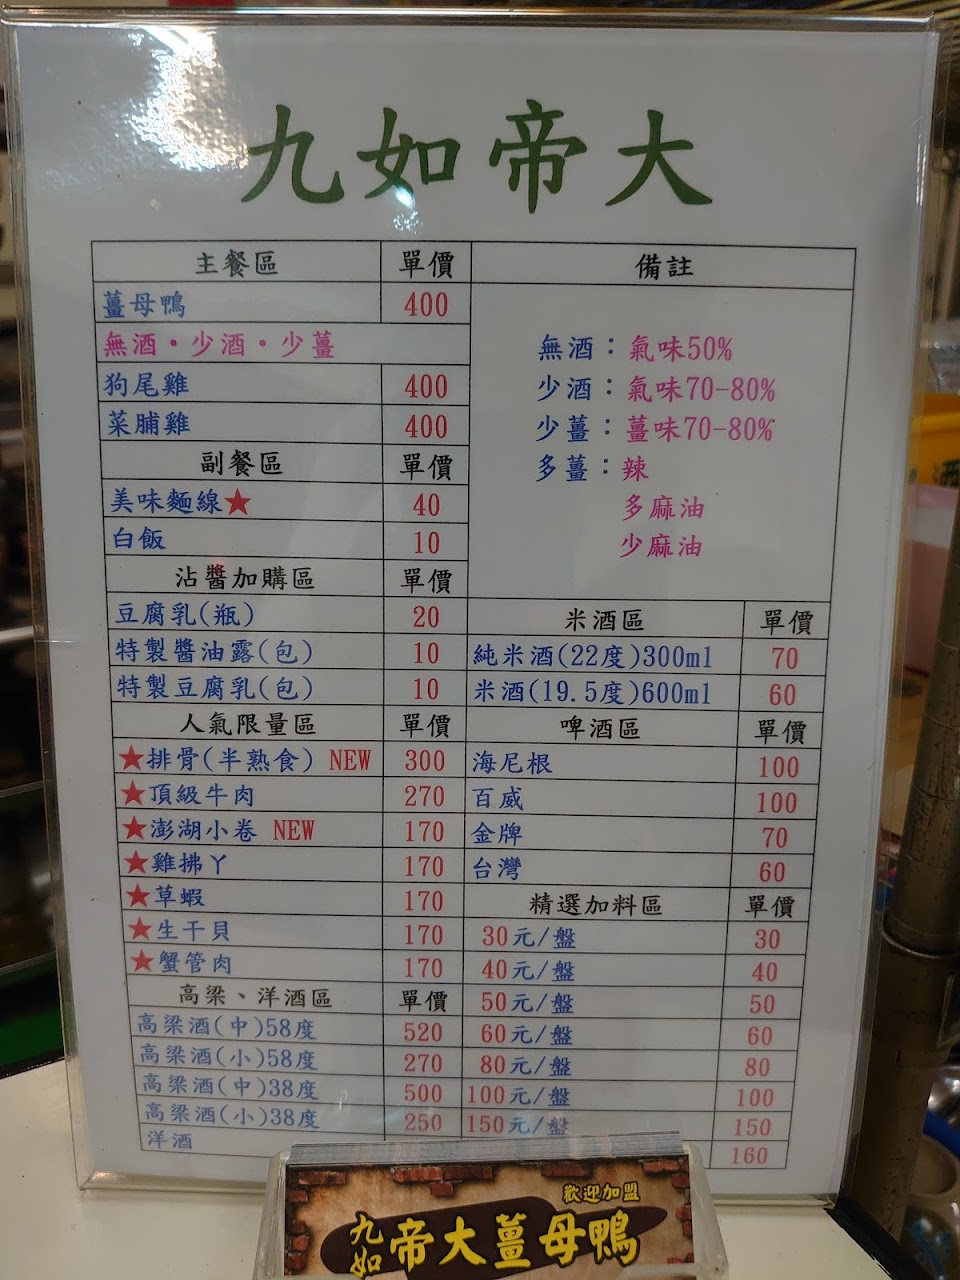 九如帝大
主餐區 單價 備註
薑母鴨 400
無酒・少酒・少薑
狗尾雞 400
菜脯雞 400
無酒：氣味50%
少酒：氣味70-80%
少薑：薑味70-80%
多薑：辣
多麻油
少麻油
副餐區 單價
美味麵線★ 40
白飯 10
沾醬加購區 單價
豆腐乳(瓶) 20
特製醬油露(包) 10
特製豆腐乳(包) 10
人氣限量區 單價
★排骨(半熟食) NEW 300
★頂級牛肉 270
★澎湖小卷 NEW 170
★雞拂丫 170
★草蝦 170
★生干貝 170
★蟹管肉 170
高梁、洋酒區 單價
高梁酒(中)58度 520
高梁酒(小)58度 270
高梁酒(中)38度 500
高梁酒(小)38度 250
洋酒
米酒區 單價
純米酒(22度)300ml 70
米酒(19.5度)600ml 60
啤酒區 單價
海尼根 100
百威 100
金牌 70
台灣 60
精選加料區 單價
30元/盤 30
40元/盤 40
50元/盤 50
60元/盤 60
80元/盤 80
100元/盤 100
150元/盤 150
160
歡迎加盟
九如帝大薑母鴨